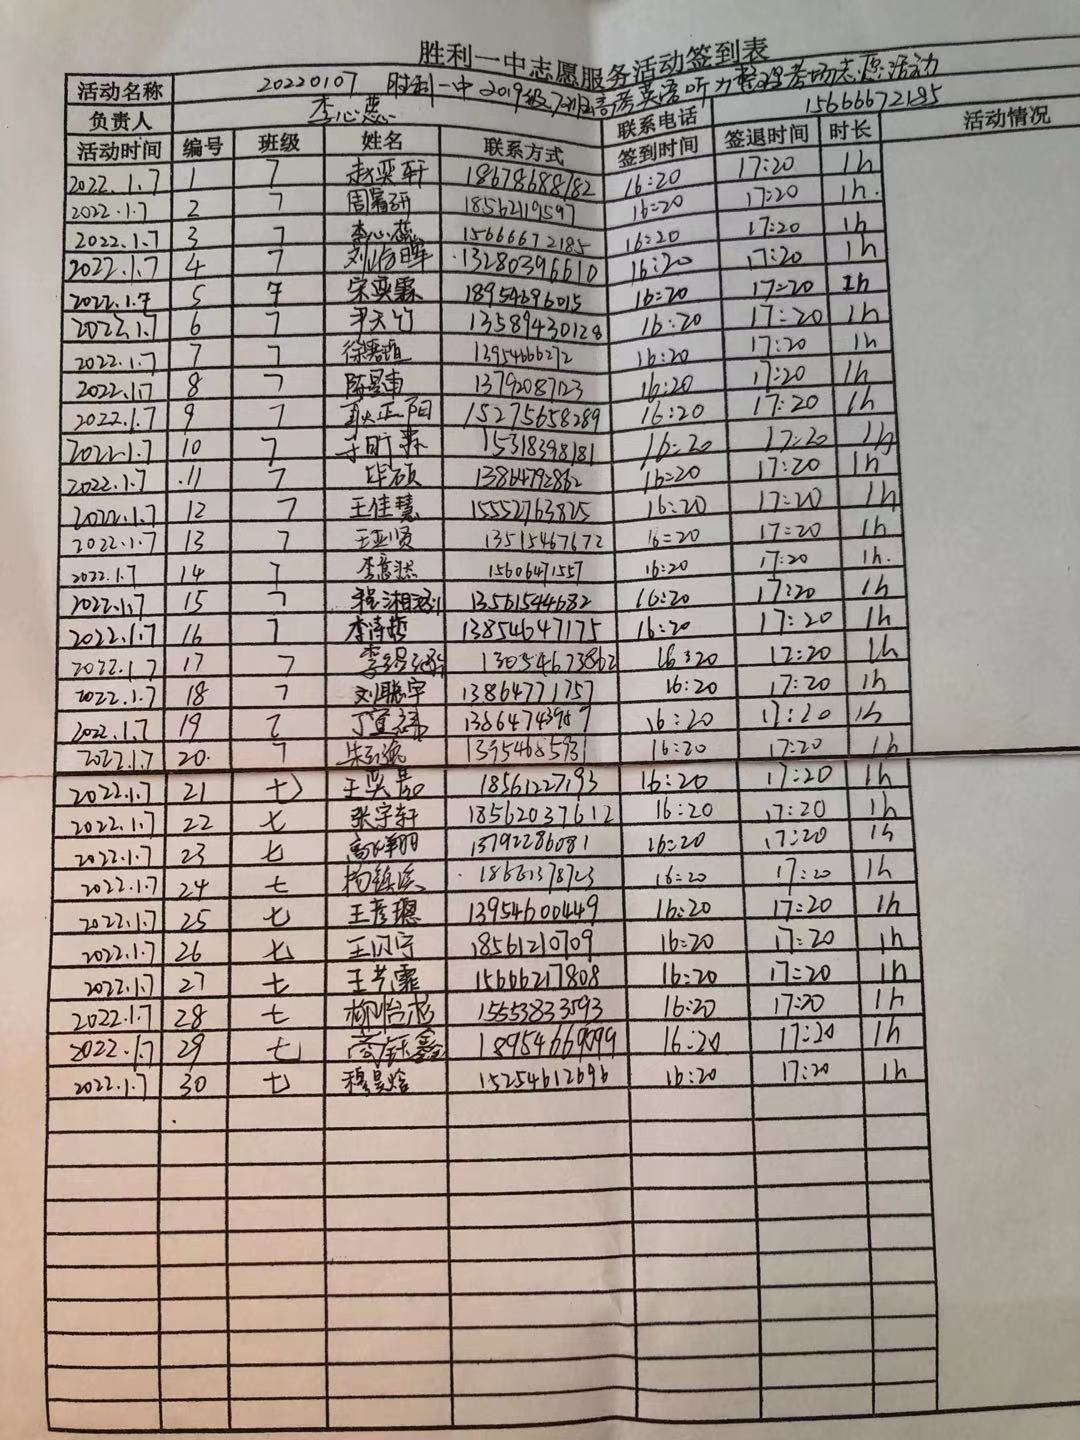 胜利一中志愿服务活动签到表
活动名称 20220107 胜利一中2019级7班高考英语听力整理考场志愿活动
负责人 李心蕊 联系电话 15666672185
活动时间 编号 班级 姓名 联系方式 签到时间 签退时间 时长 活动情况
2022.1.7 1 7 赵奕轩 18678688182 16:20 17:20 1h
2022.1.7 2 7 16:20 17:20 1h.
2022.1.7 3 7 李心蕊 15666672185 16:20 17:20 1h
2022.1.7 4 7 13280396610 16:20 17:20 1h
2022.1.7 5 7 宋奕霖 18954696015 16:20 17:20 1h
2022.1.7 6 7 尹天竹 13589430128 16:20 17:20 1h
2022.1.7 7 7 13954666272 16:20 17:20 1h
2022.1.7 8 7 13792087123 16:20 17:20 1h
2022.1.7 9 7 耿正阳 15275658289 16:20 17:20 1h
2022.1.7 10 7 于昕霖 15318398181 16:20 17:20 1h
2022.1.7 11 7 毕硕 13864792862 16:20 17:20 1h
2022.1.7 12 7 王佳慧 15552763825 16:20 17:20 1h
2022.1.7 13 7 王亚贤 13515467672 16:20 17:20 1h
2022.1.7 14 7 15606471557 16:20 17:20 1h.
2022.1.7 15 7 13561544682 16:20 17:20 1h
2022.1.7 16 7 李诗哲 13854647175 16:20 17:20 1h
2022.1.7 17 7 13054673862 16:20 17:20 1h
2022.1.7 18 7 刘聪宇 13864771757 16:20 17:20 1h
2022.1.7 19 7 丁宣瑞 16:20 17:20 1h
2022.1.7 20. 7 16:20 17:20 1h
2022.1.7 21 七 18561227193 16:20 17:20 1h
2022.1.7 22 七 张宇轩 18562037612 16:20 17:20 1h
2022.1.7 23 七 13792286081 16:20 17:20 1h
2022.1.7 24 七 16:20 17:20 1h
2022.1.7 25 七 王彦璁 13954600449 16:20 17:20 1h
2022.1.7 26 七 王闪宁 18561210709 16:20 17:20 1h
2022.1.7 27 七 王艺霏 15666217808 16:20 17:20 1h
2022.1.7 28 七 15553833593 16:20 17:20 1h
2022.1.7 29 七 18954669099 16:20 17:20 1h
2022.1.7 30 七 穆昊晗 15254612696 16:20 17:20 1h